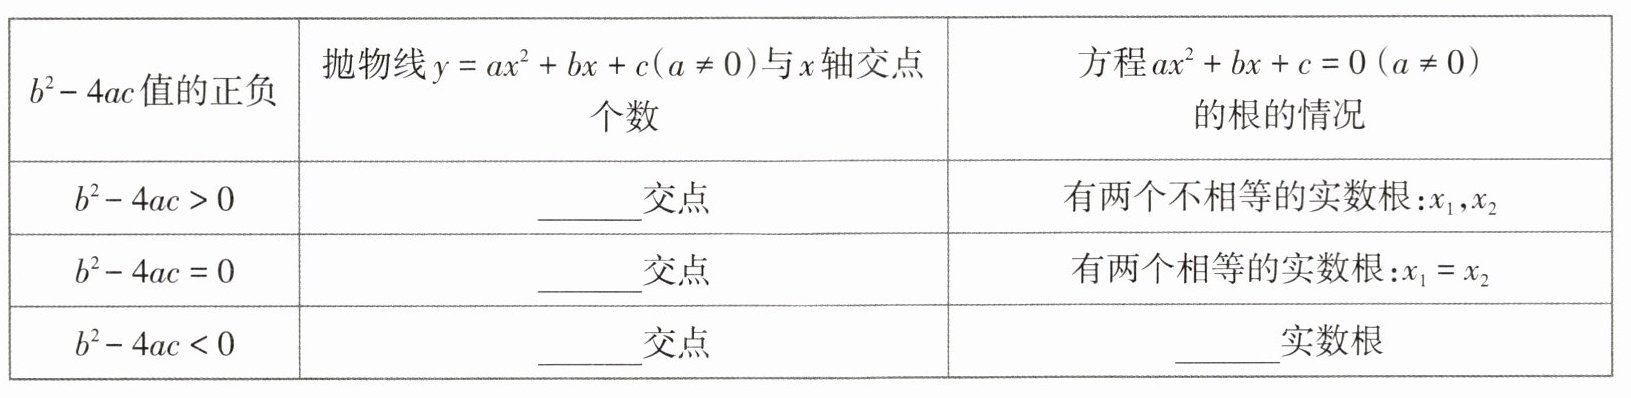 b² - 4ac值的正负
抛物线y = ax² + bx + c(a ≠ 0)与x轴交点
个数
方程ax² + bx + c = 0 (a ≠ 0)
的根的情况
b² - 4ac > 0
______交点
有两个不相等的实数根:x₁,x₂
b² - 4ac = 0
______交点
有两个相等的实数根:x₁ = x₂
b² - 4ac < 0
______交点
______实数根